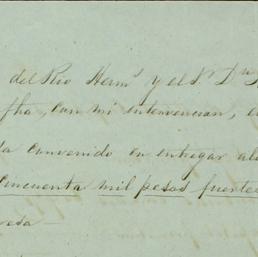 del Rio Herm.s y el S.r D.n
fha, con mi intervencion,
convenido en entregar al
Cincuenta mil pesos fuerte